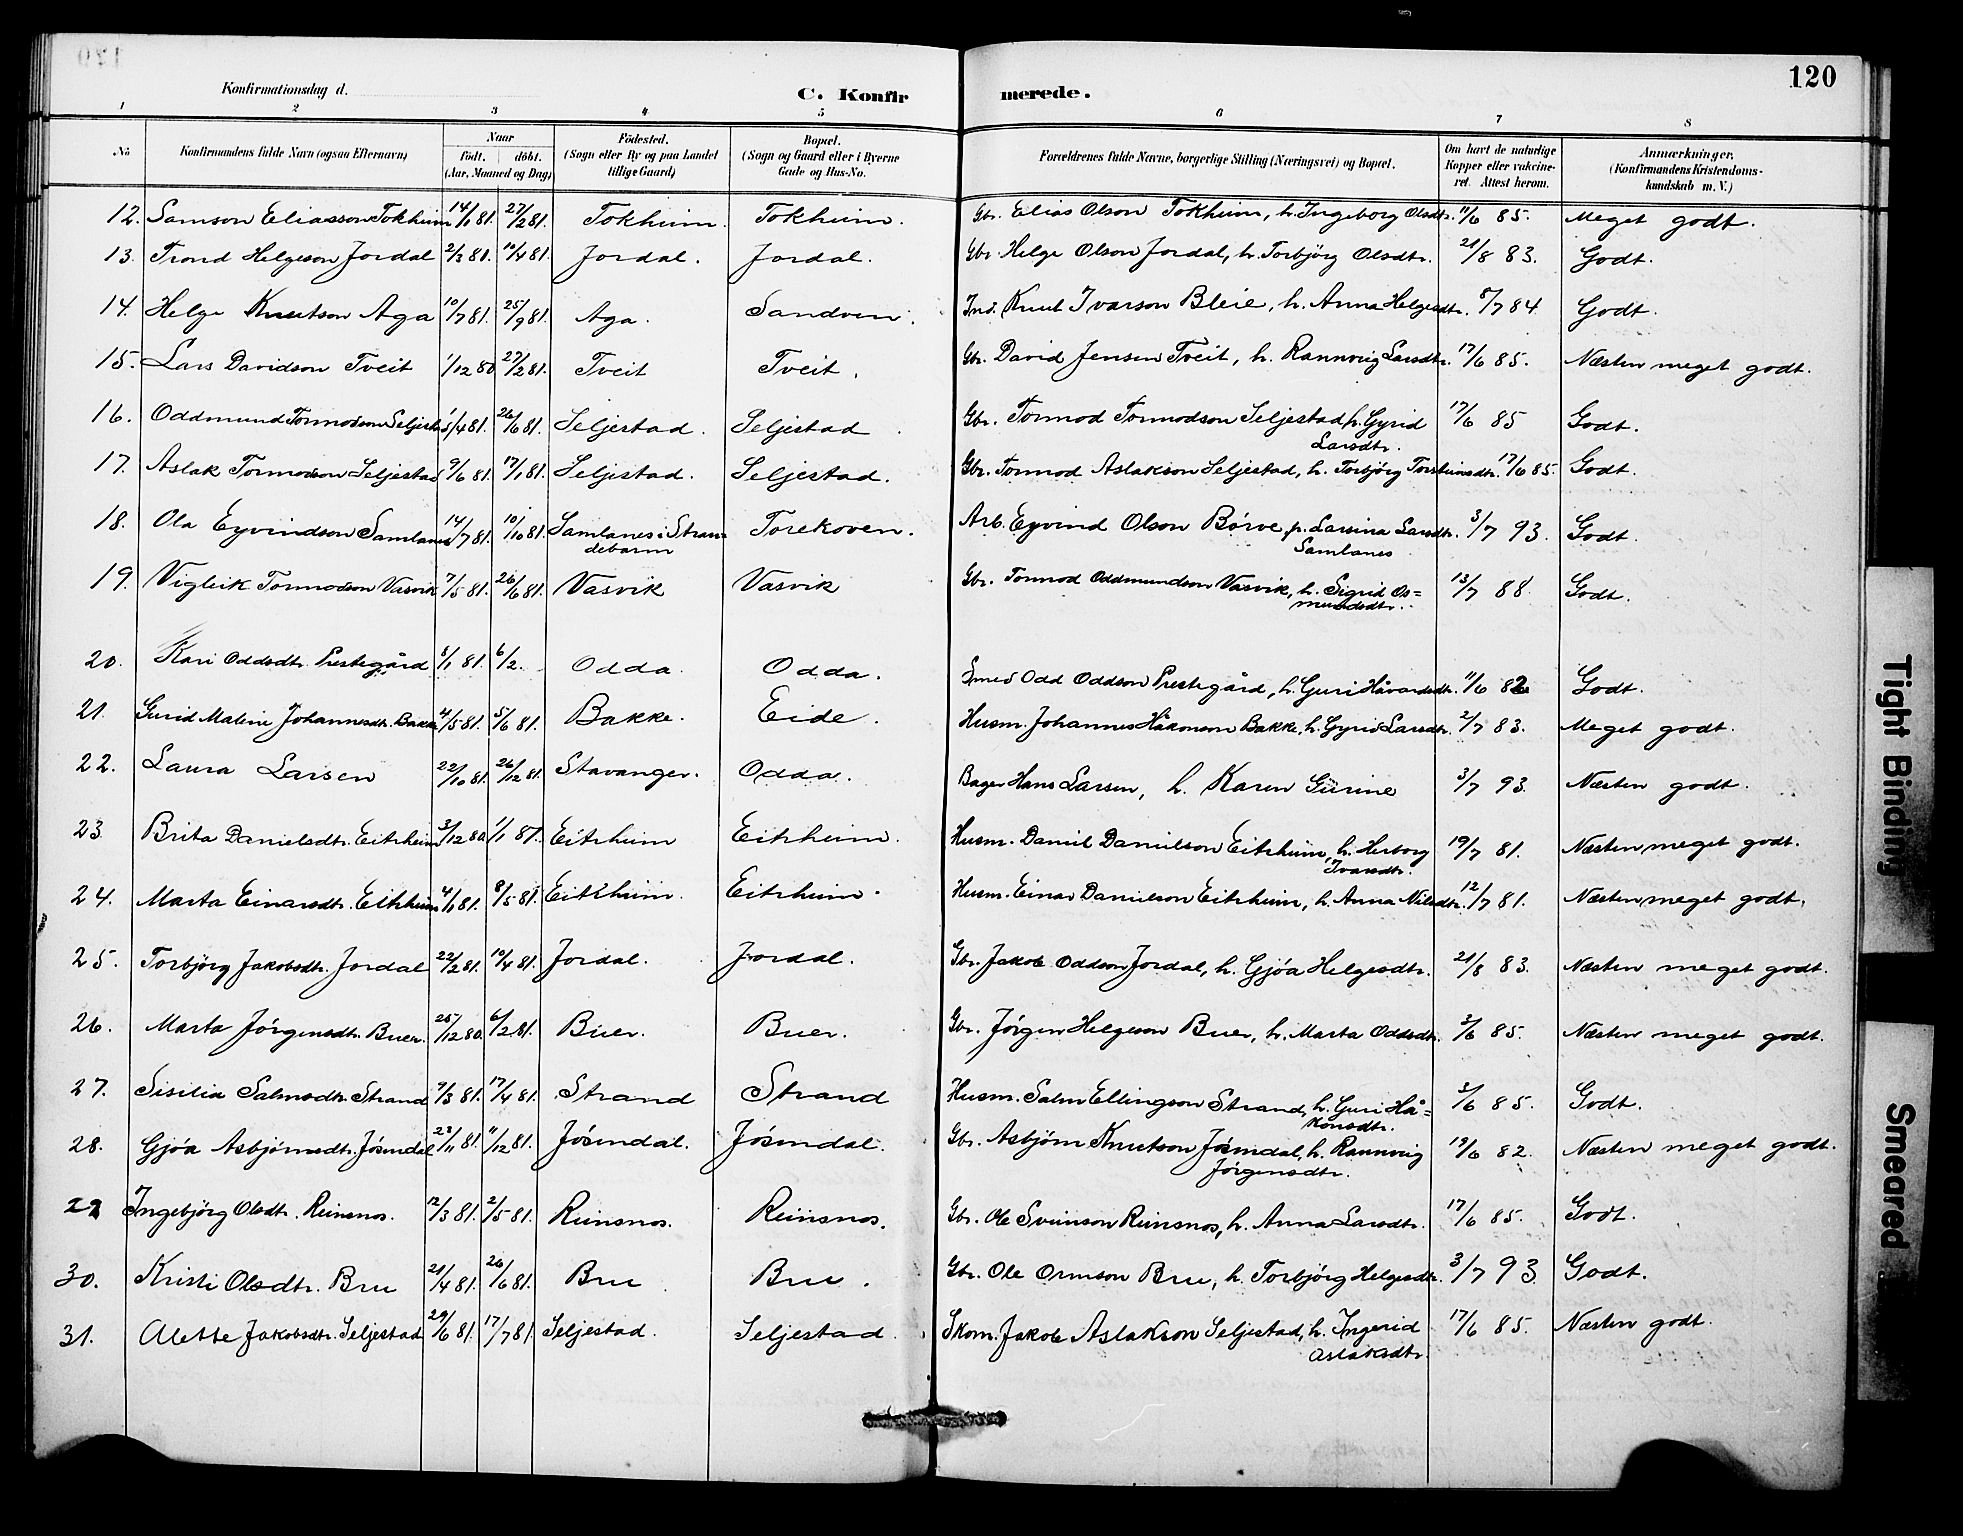 120
Konfirmationsdag d.
C. Konfirmerede.
1 2 3 4 5 6 7 8
No Konfirmandens fulde Navn (ogsaa Efternavn) Naar født. døbt. (Aar, Maaned og Dag) Fødested. (Sogn eller By og paa Landet tillige Gaard) Bopæl. (Sogn og Gaard eller i Byerne Gade og Hus-No. Forældrenes fulde Navne, borgerlige Stilling (Næringsvei) og Bopæl. Om havt de naturlige Kopper eller vakcineret. Attest herom. Anmærkninger. (Konfirmandens Kristendomskundskab m. V.)
12. Samson Eliasson Tokheim 14/1 81. 27/2 81. Tokheim. Tokheim. Gbr. Elias Olson Tokheim, h. Ingeborg Olsdtr. 11/6 85. Meget godt.
13. Trond Helgeson Jordal 2/2 81. 10/4 81. Jordal. Jordal. Gbr. Helge Olson Jordal, h. Torbjörg Olsdtr. 21/8 83. Godt.
14. Helge Knutson Aga 10/7 81. 25/9 81. Aga. Sandven. Ind. Knut Ivarson Bleie, h. Anna Helgesdtr. 8/7 84. Godt.
15. Lars Davidson Tveit 1/12 80 27/2 81. Tveit Tveit. Gbr. David Jensen Tveit, h. Rannveig Larsdtr. 17/6 85. Næsten meget godt.
16. Oddmund Tormodson Seljestad 1/4 81. 26/6 81. Seljestad. Seljestad. Gbr. Tormod Tormodson Seljestad, h. Gyrid Larsdtr. 17/6 85 Godt.
17. Aslak Tormodson Seljestad 9/6 81. 17/1 81. Seljestad. Seljestad. Gbr. Tormod Aslakson Seljestad, h. Torbjörg Torsteinsdtr. 17/6 85. Godt.
18. Ola Eyvindson Samlanes 14/7 81. 10/10 81. Samlanes i Strandebarm Torekoven. Arb. Eyvind Olson Börve p. Larsina Larsdtr. Samlanes 3/7 93. Godt.
19. Vigleik Tormodson Vasvik 7/5 81. 26/6 81. Vasvik Vasvik Gbr. Tormod Oddmundson Vasvik, h. Sigrid Os=mundsdtr. 13/7 88. Godt.
20. Kari Oddsdtr. Prestegård 8/1 81. 6/2. Odda. Odda. Smed Odd Oddson Prestegård, h. Guri Håvardsdtr. 11/6 82 Godt.
21. Gurid Malene Johannesdtr. Bakke 4/5 81. 5/6 81. Bakke. Eide. Husm. Johannes Håkonson Bakke, h. Gyrid Larsdtr. 2/7 83. Meget godt.
22. Laura Larsen 22/10 81. 26/12 81. Stavanger. Odda. Bager Hans Larsen, h. Karen Gurine 3/7 93. Næsten godt.
23. Brita Danielsdtr. Eitrheim 3/12 80. 1/1 81. Eitrheim Eitrheim. Husm. Daniel Danielson Eitrheim, h. Herborg Ivarsdtr. 19/7 81. Næsten meget godt.
24. Marta Einarsdtr. Eitrheim 4/1 81. 8/5 81. Eitrheim. Eitrheim. Husm. Einar Danielson Eitrheim, h. Anna Nilsdtr. 12/7 81. Næsten meget godt.
25. Torbjörg Jakobsdtr. Jordal 22/2 81. 10/4 81. Jordal. Jordal. Gbr. Jakob Oddson Jordal, h. Gjöa Helgesdtr. 21/8 83. Næsten meget godt.
26. Marta Jörgensdtr. Buer. 25/12 80. 6/2 81. Buer. Buer. Gbr. Jörgen Helgeson Buer, h. Marta Oddsdtr. 3/6 85. Næsten meget godt.
27. Sisilia Salmodtr. Strand 7/3 81. 17/4 81. Strand Strand Husm. Salm Ellingson Strand, h. Guri Hå=konsdtr. 3/6 85. Godt.
28. Gjöa Asbjörnsdtr. Jösendal 23/11 81. 11/12 81. Jösendal. Jösendal. Gbr. Asbjörn Knutson Jösendal, h. Rannveig Jörgensdtr. 19/6 82. Næsten meget godt.
29 Ingebjörg Olsdtr. Reinsnos. 12/3 81. 2/5 81. Reinsnos. Reinsnos. Gbr. Ole Sveinson Reinsnos, h. Anna Larsdtr. 17/6 85. Godt.
30. Kristi Olsdtr. Bru 21/4 81. 26/6 81. Bru Bru. Gbr. Ole Ormson Bru, h. Torbjörg Helgesdtr. 3/7 93. Godt.
31. Alette Jakobsdtr. Seljestad 29/6 81. 17/7 81. Seljestad. Seljestad. Skom. Jakob Aslakson Seljestad, h. Ingerid Aslaksdtr. 17/6 85. Næsten godt.
Tight Binding
Smeared